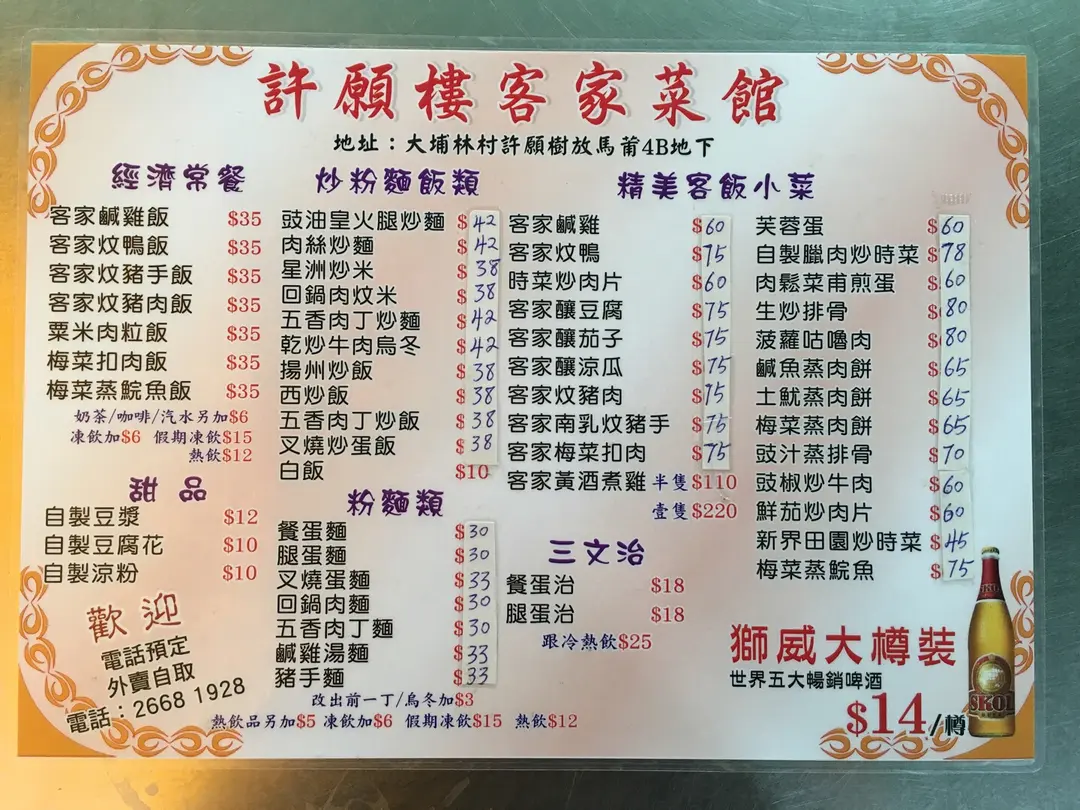 許願樓客家菜館
地址：大埔林村許願樹放馬莆4B地下
經濟常餐
客家鹹雞飯 $35
客家炆鴨飯 $35
客家炆豬手飯 $35
客家炆豬肉飯 $35
粟米肉粒飯 $35
梅菜扣肉飯 $35
梅菜蒸鯇魚飯 $35
奶茶/咖啡/汽水另加$6
凍飲加$6 假期凍飲$15
熱飲$12
甜品
自製豆漿 $12
自製豆腐花 $10
自製涼粉 $10
歡迎
電話預定
外賣自取
電話：2668 1928
炒粉麵飯類
豉油皇火腿炒麵 $42
肉絲炒麵 $42
星洲炒米 $38
回鍋肉炆米 $38
五香肉丁炒麵 $42
乾炒牛肉烏冬 $42
揚州炒飯 $38
西炒飯 $38
五香肉丁炒飯 $38
叉燒炒蛋飯 $38
白飯 $10
粉麵類
餐蛋麵 $30
腿蛋麵 $30
叉燒蛋麵 $33
回鍋肉麵 $30
五香肉丁麵 $30
鹹雞湯麵 $33
豬手麵 $33
改出前一丁/烏冬加$3
熱飲品另加$5 凍飲加$6 假期凍飲$15 熱飲$12
精美客飯小菜
客家鹹雞 $60
客家炆鴨 $75
時菜炒肉片 $60
客家釀豆腐 $75
客家釀茄子 $75
客家釀涼瓜 $75
客家炆豬肉 $75
客家南乳炆豬手 $75
客家梅菜扣肉 $75
客家黃酒煮雞 半隻$110
壹隻$220
三文治
餐蛋治 $18
腿蛋治 $18
跟冷熱飲$25
芙蓉蛋 $60
自製臘肉炒時菜 $78
肉鬆菜甫煎蛋 $60
生炒排骨 $80
菠蘿咕嚕肉 $80
鹹魚蒸肉餅 $65
土魷蒸肉餅 $65
梅菜蒸肉餅 $65
豉汁蒸排骨 $70
豉椒炒牛肉 $60
鮮茄炒肉片 $60
新界田園炒時菜 $45
梅菜蒸鯇魚 $75
獅威大樽裝
世界五大暢銷啤酒
$14/樽
SKOL